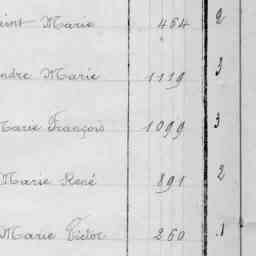 aint Marie 454 2
ndre Marie 1119 3
Marie François 1099 3
Marie René 891 2
Marie Victor 260 1